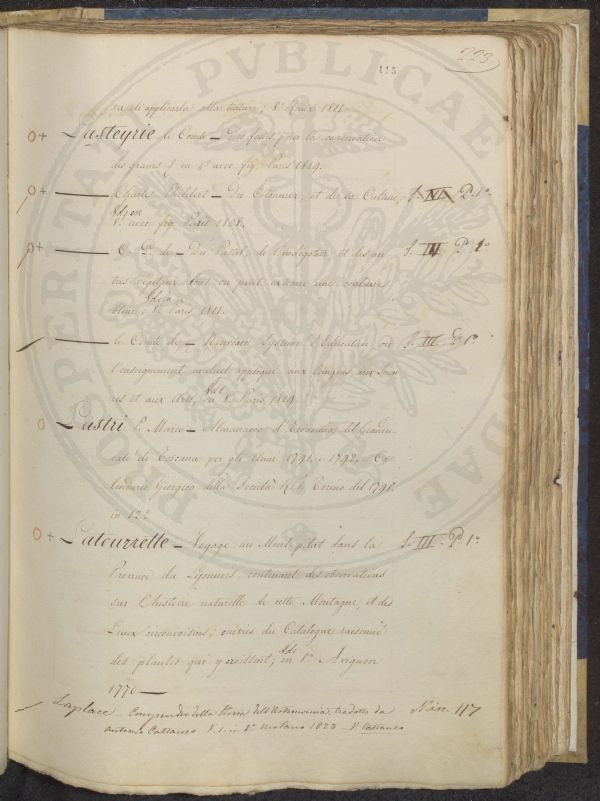 223
115
ra di applicarla alla tintura; 8° 1811
Lasteyrie le Comte — Des fosses pour la conservation
des grains f. in 4° avec fig. Paris 1819.
— Charles Philibert — Du Cotonnier, et de sa Culture, S. VI P. 1°
8° avec fig. Paris 1808.
— C. P. de — Du Pastel, de l'indigotier et des au S. III P. 1°
tres végétaux dont on peut extraire une couleur
bleue; 8° Paris 1811.
— le Comte de — Nouveau Système d'Education ou S. III P. 1°
l'enseignement mutuel appliqué aux langues, aux Scien
ces et aux Arts, 8° Paris 1819.
Lastri P. Marco — Almanacco d'Economia del Gran du
cato di Toscana per gli Anni 1791. e 1792. Ca
lendario Georgico della Società R. di Torino del 1791.
in 12°
Latourrette — Voyage au Mont-pilat dans la S. III. P. 1°
Province du Lyonnois, contenant des observations
sur l'histoire naturelle de cette Montagne, et des
Lieux circonvoisins; suivies du Catalogue raisonné
des plantes qui y croissent; in 8° Avignon
1770 —
Laplace — Compendio della Storia dell'Astronomia, tradotto da N. in. 117
Antonio Cattaneo V. 1. in 8° Milano 1823 — V. Cattaneo
PROSPERITATI PVBLICAE